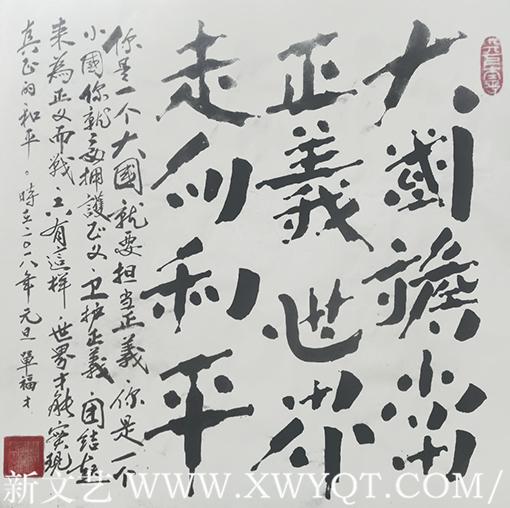 大國擔當
正義世界
走向和平
你是一个大國就要担当正義你是一个
小國你就要拥護正义、卫护正義团结起
来為正义而戰、只有這样，世界才能實现
真正的和平。時在二〇一八年元旦單福才
新文艺 WWW.XWYQT.COM/